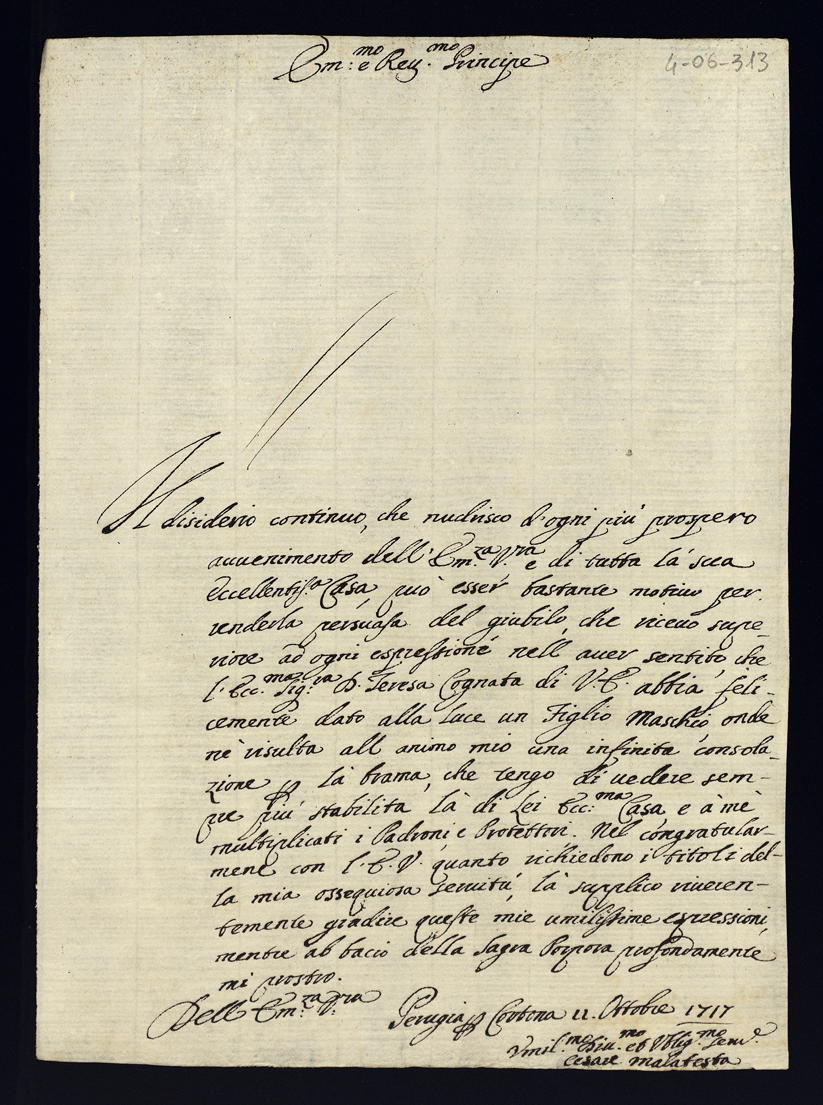 Em:mo e Rev.mo Principe
4-06-313
Il disiderio continuo, che nudrisco d'ogni più prospero
avvenimento dell'Em:za V:ra e di tutta la sua
Eccellentiss.a Casa, può esser bastante motivo per
renderla persuasa del giubilo, che ricevo supe-
riore ad ogni espressione nell'aver sentito, che
l'Ecc:ma Sig:ra D. Teresa Cognata di V.E. abbia feli-
cemente dato alla luce un Figlio Maschio, onde
ne risulta all'animo mio una infinita consola-
zione p la brama, che tengo di vedere sem-
pre più stabilita la di Lei Ecc:ma Casa e à me
multiplicati i Padroni e Protettori. Nel congratular-
mene con l'E.V. quanto richiedono i titoli del-
la mia ossequiosa servitù, la supplico riveren-
temente gradire queste mie umilissime espressioni,
mentre al bacio della Sagra Porpora profondamente
mi prostro.
Dell'Em:za V:ra
Perugia p Cortona 11. Ottobre 1717
Vmil.mo Div.mo et Oblig.mo Serv.e
Cesare Malatesta